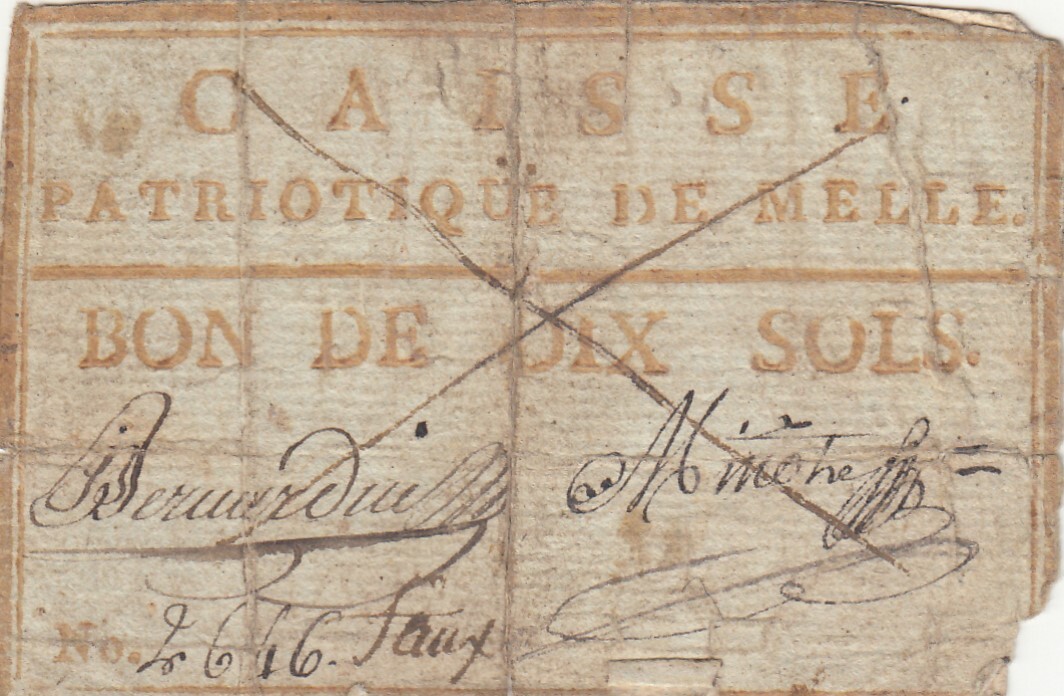 CAISSE
PATRIOTIQUE DE MELLE.
BON DE DIX SOLS.
No. 2646. faux